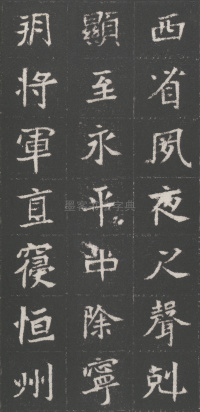 西省夙夜尺聲剋
顯至永平中除寧
朔将軍直寑恒州